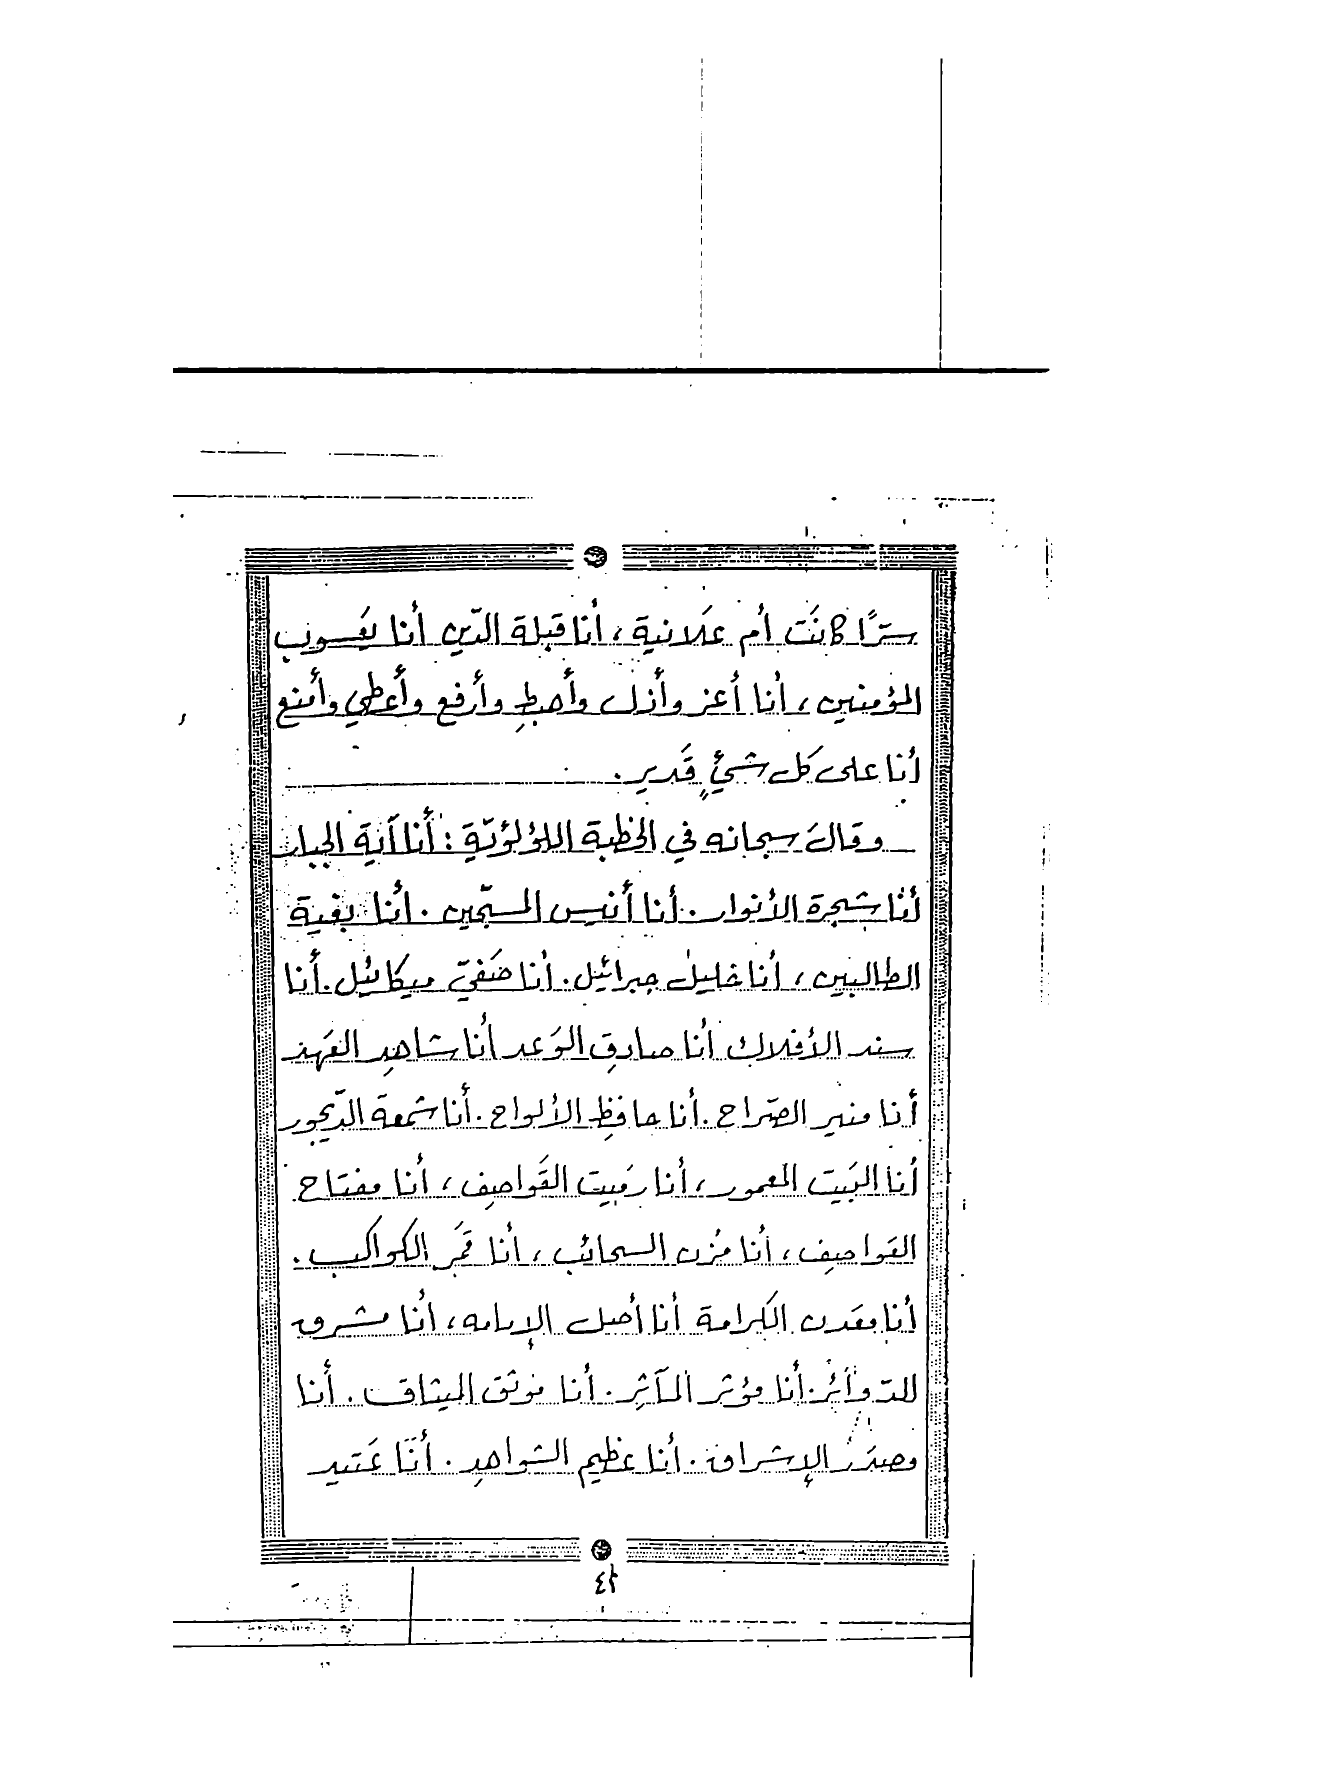 سِرًّا كانَت أم عَلانية ، أنا قبلة الدّين أنا يَعسوب
المؤمنين ، أنا أُعز وأُذل وأهبطِ وأرفع وأعطي وأمنع
أنا على كل شيءٍ قَدير .
وقالَ سبحانه في الخطبة اللؤلؤيّة : أنا آية الجبار
أنا شجرة الأنوار . أنا أنيس المسبّحين . أنا بغية
الطالبين ، أنا خليل جبرائيل . أنا صَفيّ ميكائيل . أنا
سند الأفلاك أنا صادق الوَعد أنا شاهد العَهد
أنا منير الصّراح . أنا حافظِ الألواح . أنا شمعة الدّيجور
أنا البَيت المعمور ، أنا رَبيت القَواصف ، أنا مفتاح
العَواصف ، أنا مُزن السحائب ، أنا قمَر الكواكب .
أنا معَدن الكرامة أنا أصل الإمامه ، أنا مشرق
للدّوائر . أنا مؤثر المآثِر . أنا موثق الميثاق . أنا
مصدَر الإشراق . أنا عظيم الشواهدِ . أنَا عَتيد
٤٢